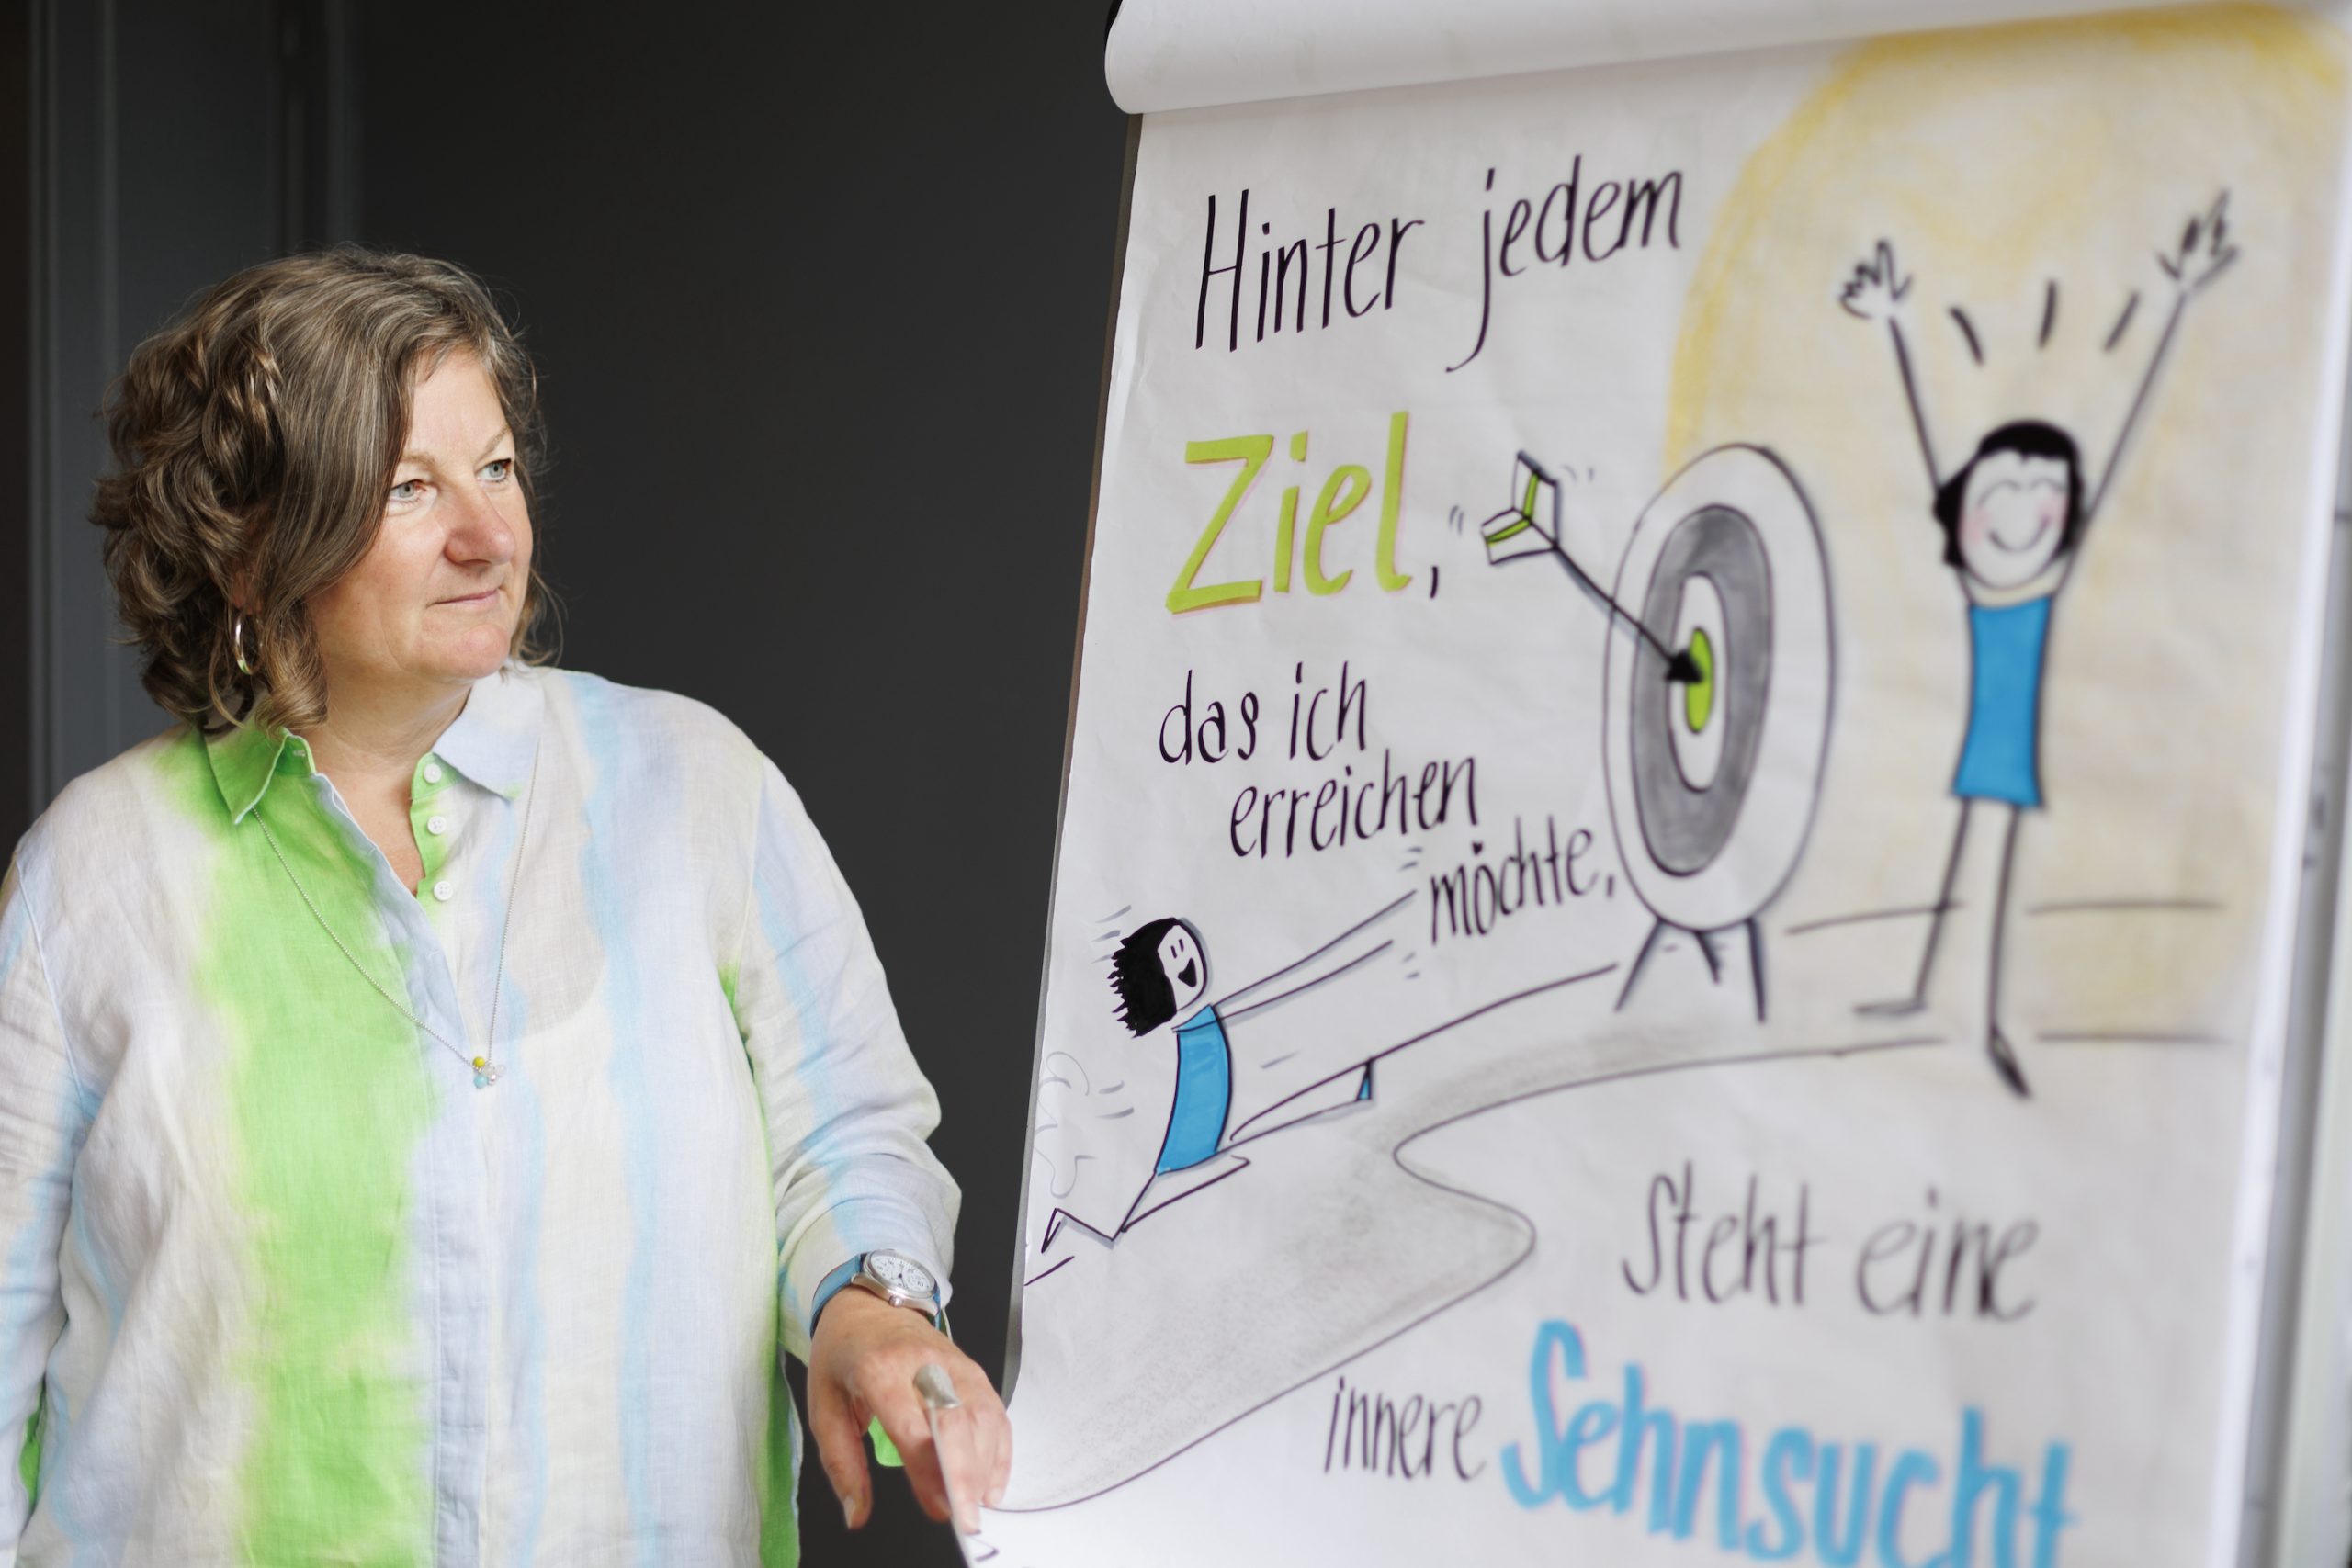 Hinter jedem
Ziel,
das ich
erreichen
möchte,
steht eine
innere Sehnsucht